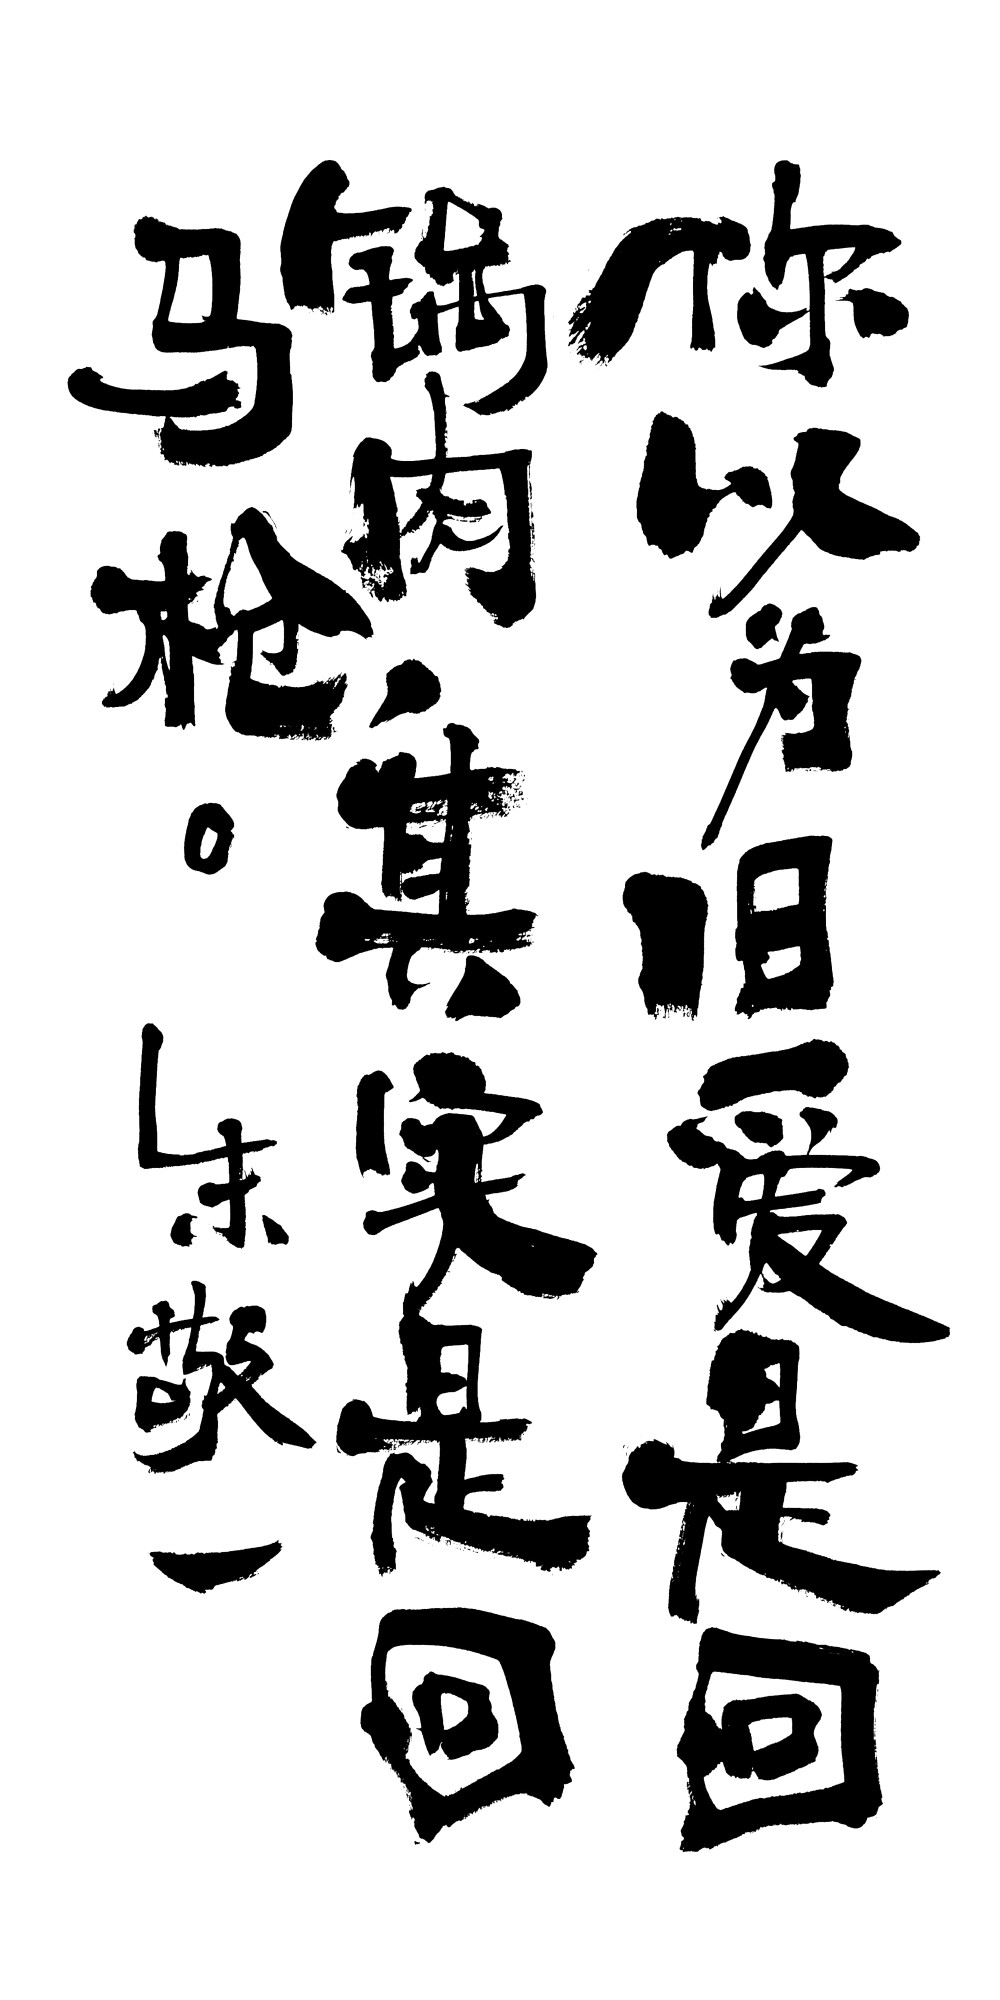 你以为旧爱是回
锅肉，其实是回
马枪。
朱敬一